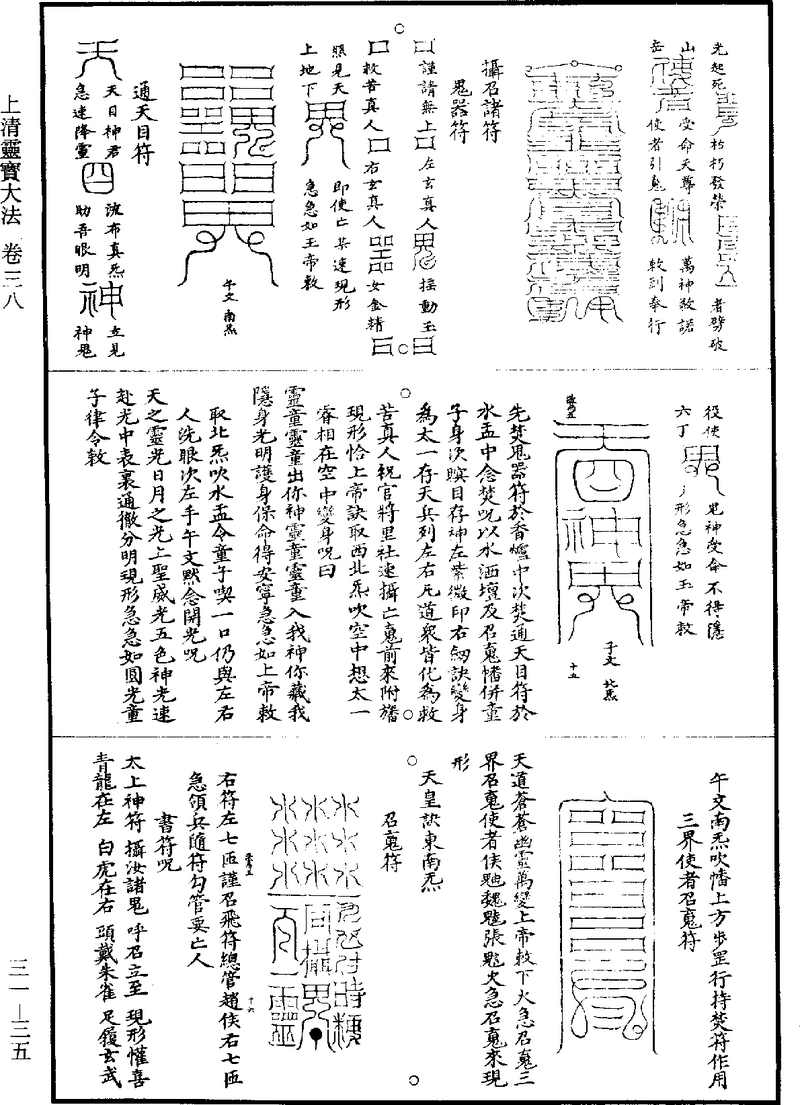 上清靈寶大法 卷三八
三一—三五
光起死朽朽發榮者劈破
山受命天尊萬神敬諾
岳使者引䰟敕到奉行
攝召諸符
鬼器符
謹請無上左玄真人鬼搖動玉
救苦真人右玄真人女金精
照見天即使亡某速現形
上地下急急如玉帝敕
午文 南炁
通天目符
天目神君流布真炁立見
急速降靈助吾眼明神鬼
役使鬼神受命不得隱
六丁形急急如玉帝敕
子文 北炁
十五
先焚鬼器符於香爐中次焚通天目符於
水盂中念焚呪以水洒壇及召䰟幡併童
子身次瞑目存神左紫微印右劒訣變身
為太一存天兵列左右凡道衆皆化為救
苦真人祝官將里社速攝亡䰟前來附旛
現形恰上帝訣取西北炁吹空中想太一
睿相在空中變身呪曰
靈童靈童出你神靈童靈童入我神你藏我
隱身光明護身保命得安寧急急如上帝敕
取北炁吹水盂令童子喫一口仍與左右
人洗眼次左手午文默念開光呪
天之靈光日月之光上聖威光五色神光速
赴光中表裏通徹分明現形急急如圓光童
子律令敕
午文南炁吹幡上方步罡行持焚符作用
三界使者召䰟符
天道蒼蒼幽靈萬變上帝敕下火急召䰟三
界召䰟使者侯㔫魏䰢張鬼火急召䰟來現
形
天皇訣東南炁
召䰟符
右符左七匝謹召飛符總管趙侯右七匝
十六
急領兵隨符勾管要亡人
書符呪
太上神符 攝汝諸鬼 呼召立至 現形懽喜
青龍在左 白虎在右 頭戴朱雀 足履玄武